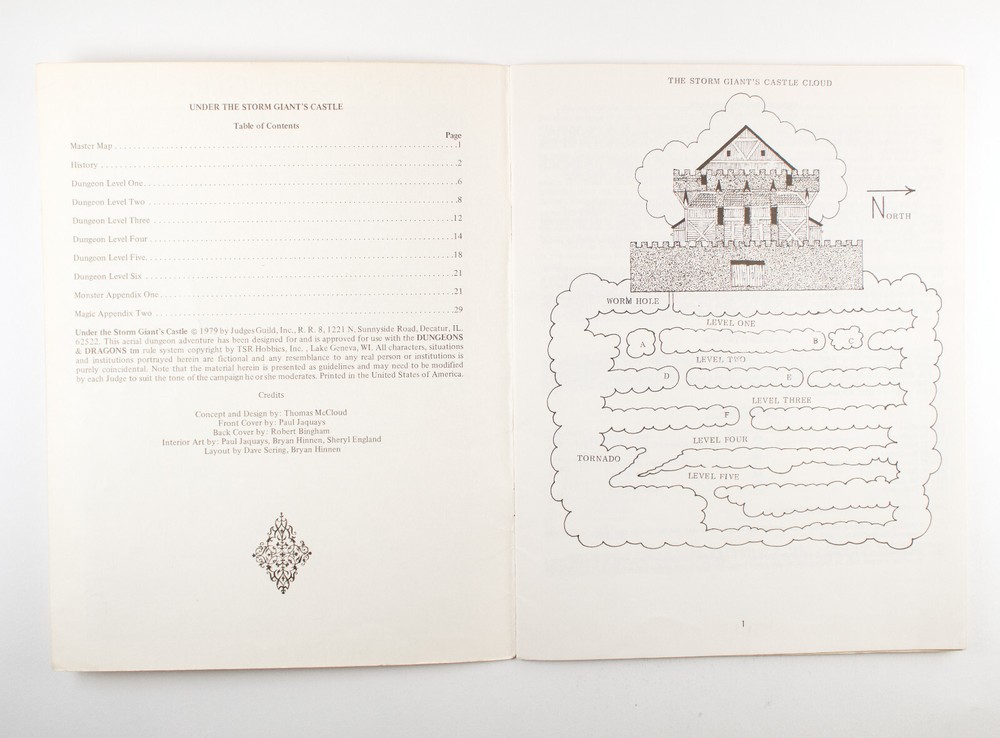 UNDER THE STORM GIANT'S CASTLE
Table of Contents
Page
Master Map . . . . . . . . . . 1
History . . . . . . . . . . 2
Dungeon Level One . . . . . . . . . . 6
Dungeon Level Two . . . . . . . . . . 8
Dungeon Level Three . . . . . . . . . . 12
Dungeon Level Four . . . . . . . . . . 14
Dungeon Level Five . . . . . . . . . . 18
Dungeon Level Six . . . . . . . . . . 21
Monster Appendix One . . . . . . . . . . 21
Magic Appendix Two . . . . . . . . . . 29
Under the Storm Giant's Castle © 1979 by Judges Guild, Inc., R. R. 8, 1221 N. Sunnyside Road, Decatur, IL.
62522. This aerial dungeon adventure has been designed for and is approved for use with the DUNGEONS
& DRAGONS tm rule system copyright by TSR Hobbies, Inc. , Lake Geneva, WI. All characters, situations
and institutions portrayed herein are fictional and any resemblance to any real person or institutions is
purely coincidental. Note that the material herein is presented as guidelines and may need to be modified
by each Judge to suit the tone of the campaign he or she moderates. Printed in the United States of America.
Credits
Concept and Design by: Thomas McCloud
Front Cover by: Paul Jaquays
Back Cover by: Robert Bingham
Interior Art by: Paul Jaquays, Bryan Hinnen, Sheryl England
Layout by Dave Sering, Bryan Hinnen
THE STORM GIANT'S CASTLE CLOUD
NORTH
WORM HOLE
LEVEL ONE
A B C
LEVEL TWO
D E
LEVEL THREE
F
LEVEL FOUR
TORNADO
LEVEL FIVE
1